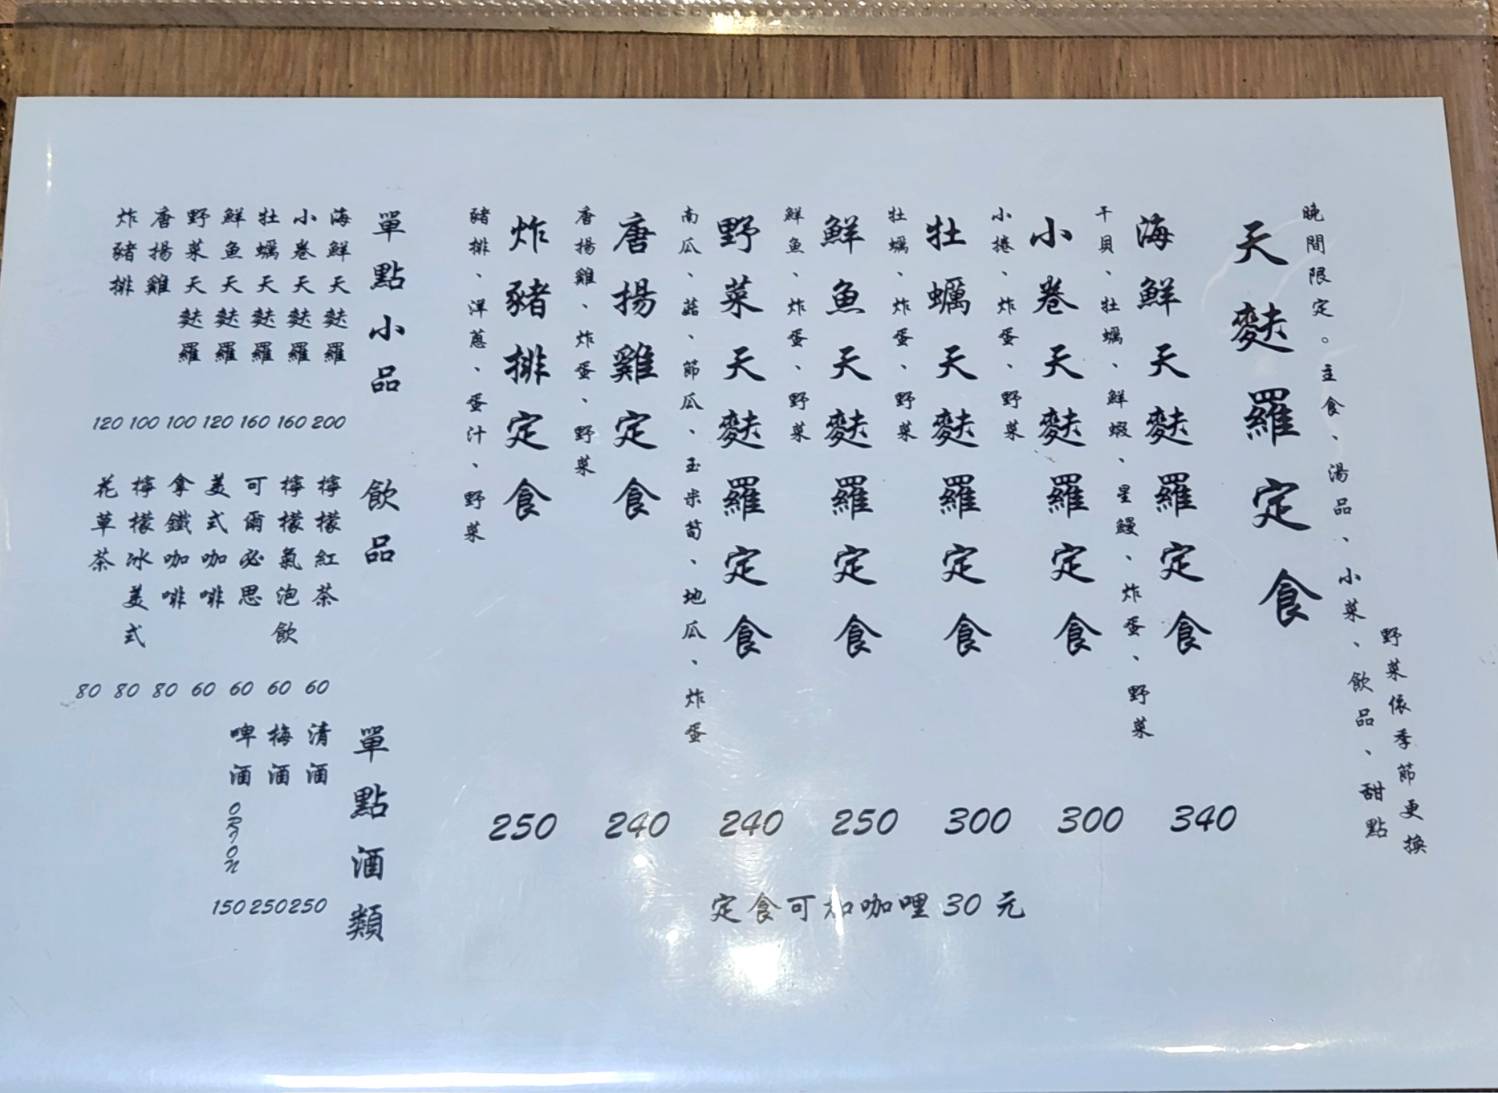 天麩羅定食
晚間限定。主食、湯品、小菜、飲品、甜點
野菜依季節更換
海鮮天麩羅定食
干貝、牡蠣、鮮蝦、星鰻、炸蛋、野菜
340
小卷天麩羅定食
小捲、炸蛋、野菜
300
牡蠣天麩羅定食
牡蠣、炸蛋、野菜
300
鮮魚天麩羅定食
鮮魚、炸蛋、野菜
250
野菜天麩羅定食
南瓜、菇、節瓜、玉米筍、地瓜、炸蛋
240
唐揚雞定食
唐揚雞、炸蛋、野菜
240
炸豬排定食
豬排、洋蔥、蛋汁、野菜
250
定食可加咖哩 30 元
單點小品
海鮮天麩羅 200
小卷天麩羅 160
牡蠣天麩羅 160
鮮魚天麩羅 120
野菜天麩羅 100
唐揚雞 100
炸豬排 120
飲品
檸檬紅茶 60
檸檬氣泡飲 60
可爾必思 60
美式咖啡 60
拿鐵咖啡 80
檸檬冰美式 80
花草茶 80
單點酒類
清酒 250
梅酒 250
啤酒 ORION 150